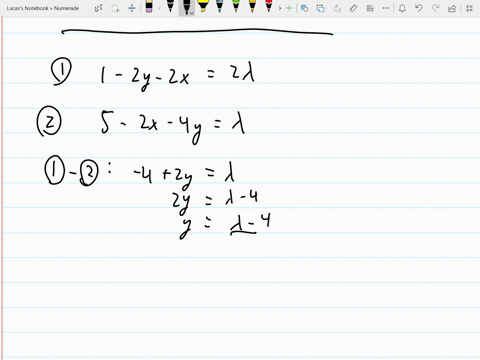 Lucas's Notebook » Numerade
① 1 - 2y - 2x = 2λ
② 5 - 2x - 4y = λ
① - ② : -4 + 2y = λ
2y = λ - 4
y = λ - 4